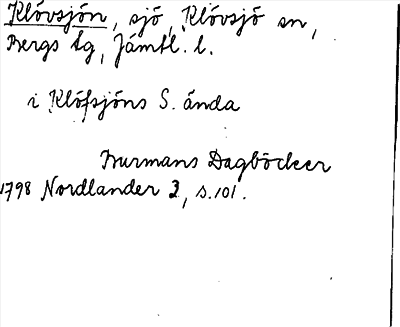 Klövsjön, sjö, Klövsjö sn,
Bergs tg, Jämtl. l.
i Klöfsjöns S. ända
Burmans Dagböcker
1798 Nordlander 2, s. 101.